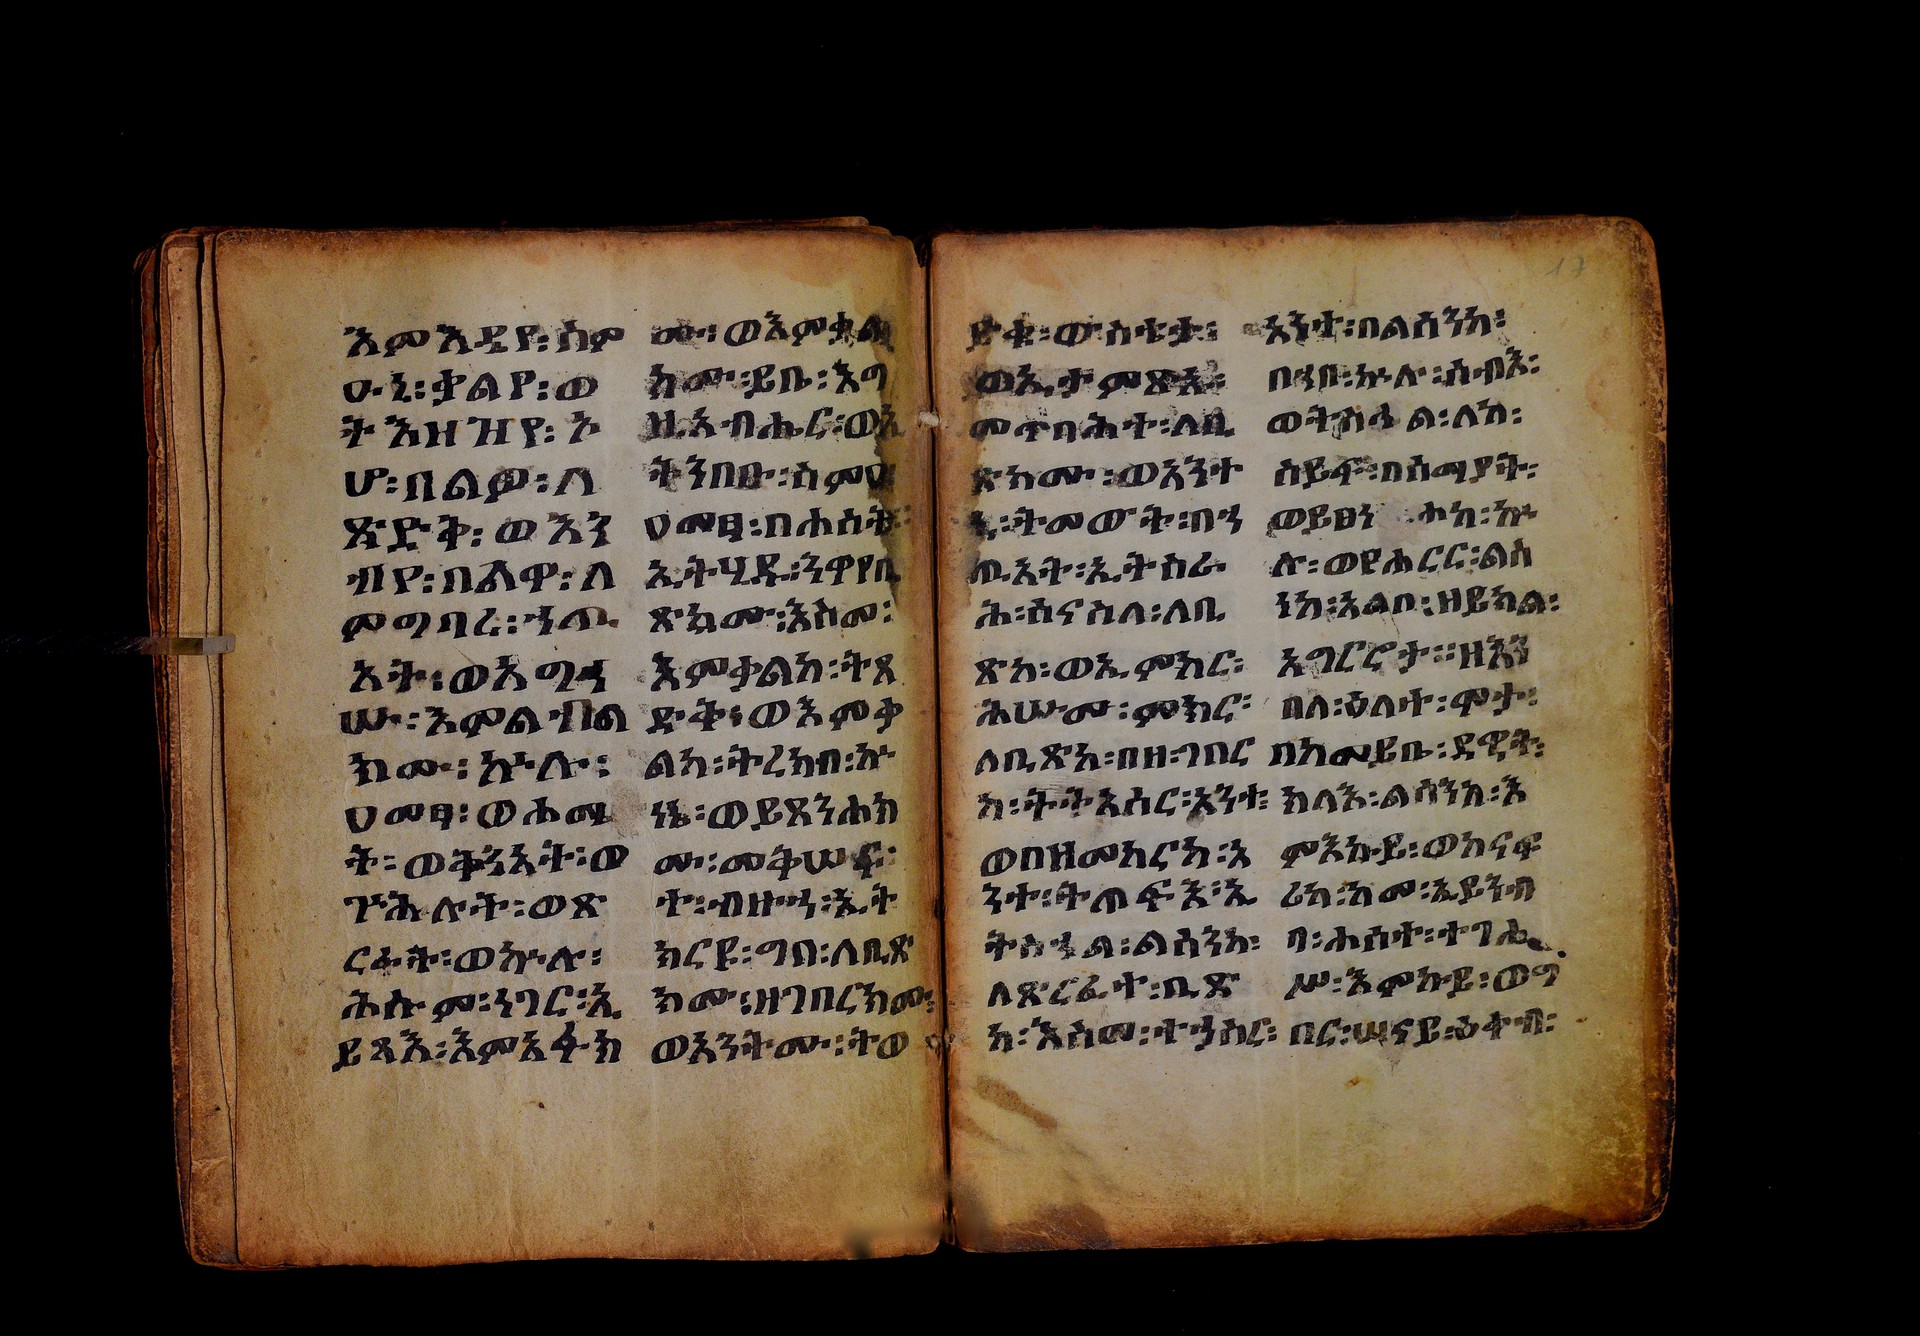 እምእዴየ፡ ስም
ሁኒ፡ ቃልየ፡ ወ
ትእዝዝየ፡ ኦ
ሆ፡ በልዎ፡ ለ
ጽድቅ፡ ወእን
ብየ፡ በልዋ፡ ለ
ምግባረ፡ ኀጢ
አት፡ ወአግኀ
ሡ፡ እምልብል
ክሙ፡ ኵሎ፡
ሀመፃ፡ ወሐሜ
ት፡ ወቅንአት፡ ወ
ጕሕሉት፡ ወጽ
ርፈት፡ ወኵሉ፡
ሕሱም፡ ነገር፡ ኢ
ይጻእ፡ እምአፉክ
ሙ፡ ወእምቃል
ክሙ፡ ይቤ፡ እግ
ዚአብሔር፡ ወኢ
ትንበቡ፡ ስምዐ፡
ሀመፃ፡ በሐሰት፡
ኢትሂዱ፡ ንዋየ ቢ
ጽክሙ፡ እስመ፡
እምቃልከ፡ ትጸ
ድቅ፡ ወእምቃ
ልከ፡ ትረክብ፡ ኵ
ነኔ፡ ወይጸንሐክ
ሙ፡ መቅሠፍ፡
ት፡ ብዙኅ፡ ኢት
ክርዩ፡ ግበ፡ ለቢጽ
ክሙ፡ ዘገበርክሙ፡
ወአንትሙ፡ ትወ
ድቁ፡ ውስቴታ፡
ወኢታምጽኡ፡
መጥባሕተ፡ ለቢ
ጽክሙ፡ ወአንተ
ኒ፡ ትመውት፡ በኀ
ጢአት፡ ኢትስራ
ሕ፡ ሰናስለ፡ ለቢ
ጽከ፡ ወኢምክር፡
ሕሡመ፡ ምክር፡
ለቢጽከ፡ በዘ፡ ገበር
ከ፡ ትትአሰር፡ አንተ፡
ወበዘመከሮከ፡ አ
ንተ፡ ትጠፍእ፡ ኢ
ትስኀል፡ ልሳንከ፡
ለጽርፈተ፡ ቢጽ
ከ፡ እስመ፡ ተኃስር፡
አንተ፡ በልሳንከ፡
በኀበ፡ ኵሉ፡ ሰብእ፡
ወትስኃል፡ ለከ፡
ሰይፍ፡ በሰማያት፡
ወይፀን ሐከ፡ ኵ
ሉ፡ ወየሐርር፡ ልሳ
ነከ፡ አልቦ፡ ዘይክል፡
አግርሮታ፡፡ ዘእን
በለ፡ ዕለተ፡ ሞታ፡
በከመይቤ፡ ዳዊት፡
ክላእ፡ ልሳንከ፡ እ
ምእኩይ፡ ወከናፍ
ሪከ፡ ከመ፡ ኢይንብ
ባ፡ ሐሰተ፡ ተገሐ
ሥ፡ እምኩይ፡ ወግ
በር፡ ሠናይ፡ ዕቀብ፡